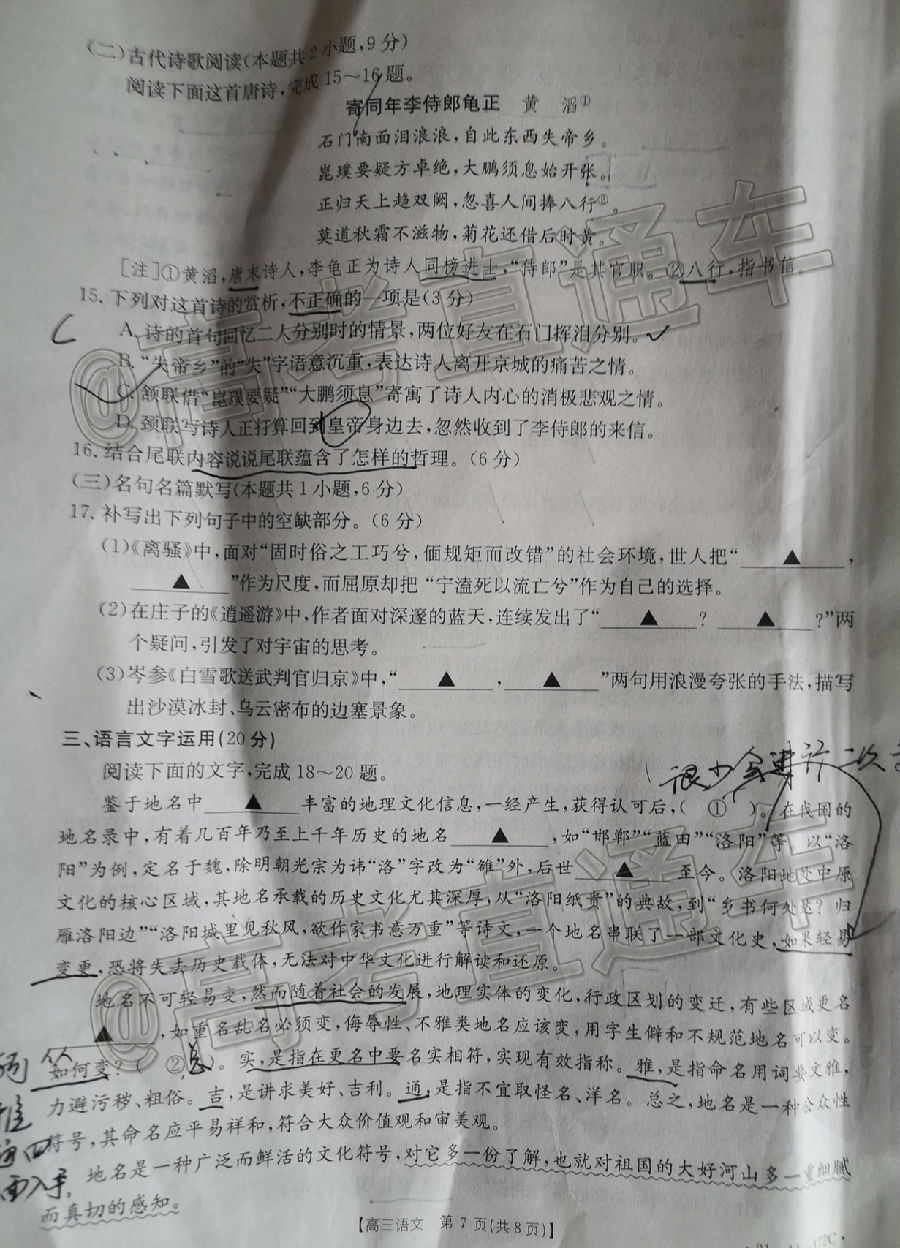 (二)古代诗歌阅读(本题共2小题,9分)
阅读下面这首唐诗,完成15～16题。
寄同年李侍郎龟正 黄 滔①
石门南面泪浪浪,自此东西失帝乡。
崑璞要疑方卓绝,大鹏须息始开张。
正归天上趋双阙,忽喜人间捧八行②。
莫道秋霜不滋物,菊花还借后时黄。
[注]①黄滔,唐末诗人,李龟正为诗人同榜进士,“侍郎”是其官职。②八行,指书信。
15.下列对这首诗的赏析,不正确的一项是(3分)
C
A.诗的首句回忆二人分别时的情景,两位好友在石门挥泪分别。
B.“失帝乡”的“失”字语意沉重,表达诗人离开京城的痛苦之情。
C.颔联借“崑璞要疑”“大鹏须息”寄寓了诗人内心的消极悲观之情。
D.颈联写诗人正打算回到皇帝身边去,忽然收到了李侍郎的来信。
16.结合尾联内容说说尾联蕴含了怎样的哲理。(6分)
(三)名句名篇默写(本题共1小题,6分)
17.补写出下列句子中的空缺部分。(6分)
(1)《离骚》中,面对“固时俗之工巧兮,偭规矩而改错”的社会环境,世人把“▲,
▲”作为尺度,而屈原却把“宁溘死以流亡兮”作为自己的选择。
(2)在庄子的《逍遥游》中,作者面对深邃的蓝天,连续发出了“▲?▲?”两
个疑问,引发了对宇宙的思考。
(3)岑参《白雪歌送武判官归京》中,“▲,▲”两句用浪漫夸张的手法,描写
出沙漠冰封、乌云密布的边塞景象。
三、语言文字运用(20分)
很少会进行二次
阅读下面的文字,完成18～20题。
鉴于地名中▲丰富的地理文化信息,一经产生,获得认可后,(①)。在我国的
地名录中,有着几百年乃至上千年历史的地名▲,如“邯郸”“蓝田”“洛阳”等。以“洛
阳”为例,定名于魏,除明朝光宗为讳“洛”字改为“雒”外,后世▲至今。洛阳地处中原
文化的核心区域,其地名承载的历史文化尤其深厚,从“洛阳纸贵”的典故,到“乡书何处达?归
雁洛阳边”“洛阳城里见秋风,欲作家书意万重”等诗文,一个地名串联了一部文化史,如果轻易
变更,恐将失去历史载体,无法对中华文化进行解读和还原。
地名不可轻易变,然而随着社会的发展,地理实体的变化,行政区划的变迁,有些区域更名
▲,如重名乱名必须变,侮辱性、不雅类地名应该变,用字生僻和不规范地名可以变。
如何变?(②)。实,是指在更名中要名实相符,实现有效指称。雅,是指命名用词要文雅,
力避污秽、粗俗。吉,是讲求美好、吉利。通,是指不宜取怪名、洋名。总之,地名是一种公众性
符号,其命名应平易祥和,符合大众价值观和审美观。
面入手,
地名是一种广泛而鲜活的文化符号,对它多一份了解,也就对祖国的大好河山多一重细腻
而真切的感知。
【高三语文 第7页(共8页)】
@高考直通车
@高考直通车